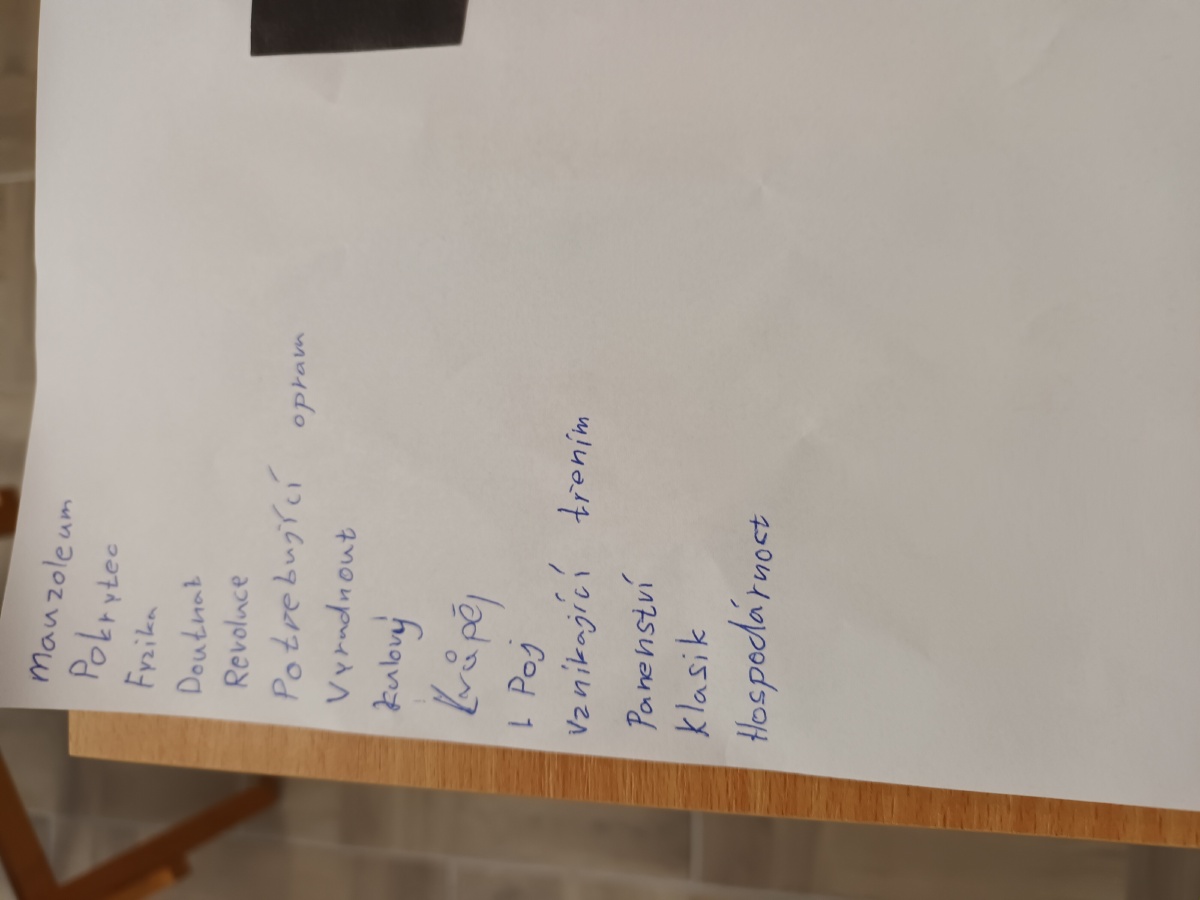 Mauzoleum
Pokrytec
Fyzika
Doutnat
Revoluce
Potrebující opravu
Vyrudnout
kulový
Krůpěj
Poj
vznikající třením
Panenství
klasik
Hospodárnost